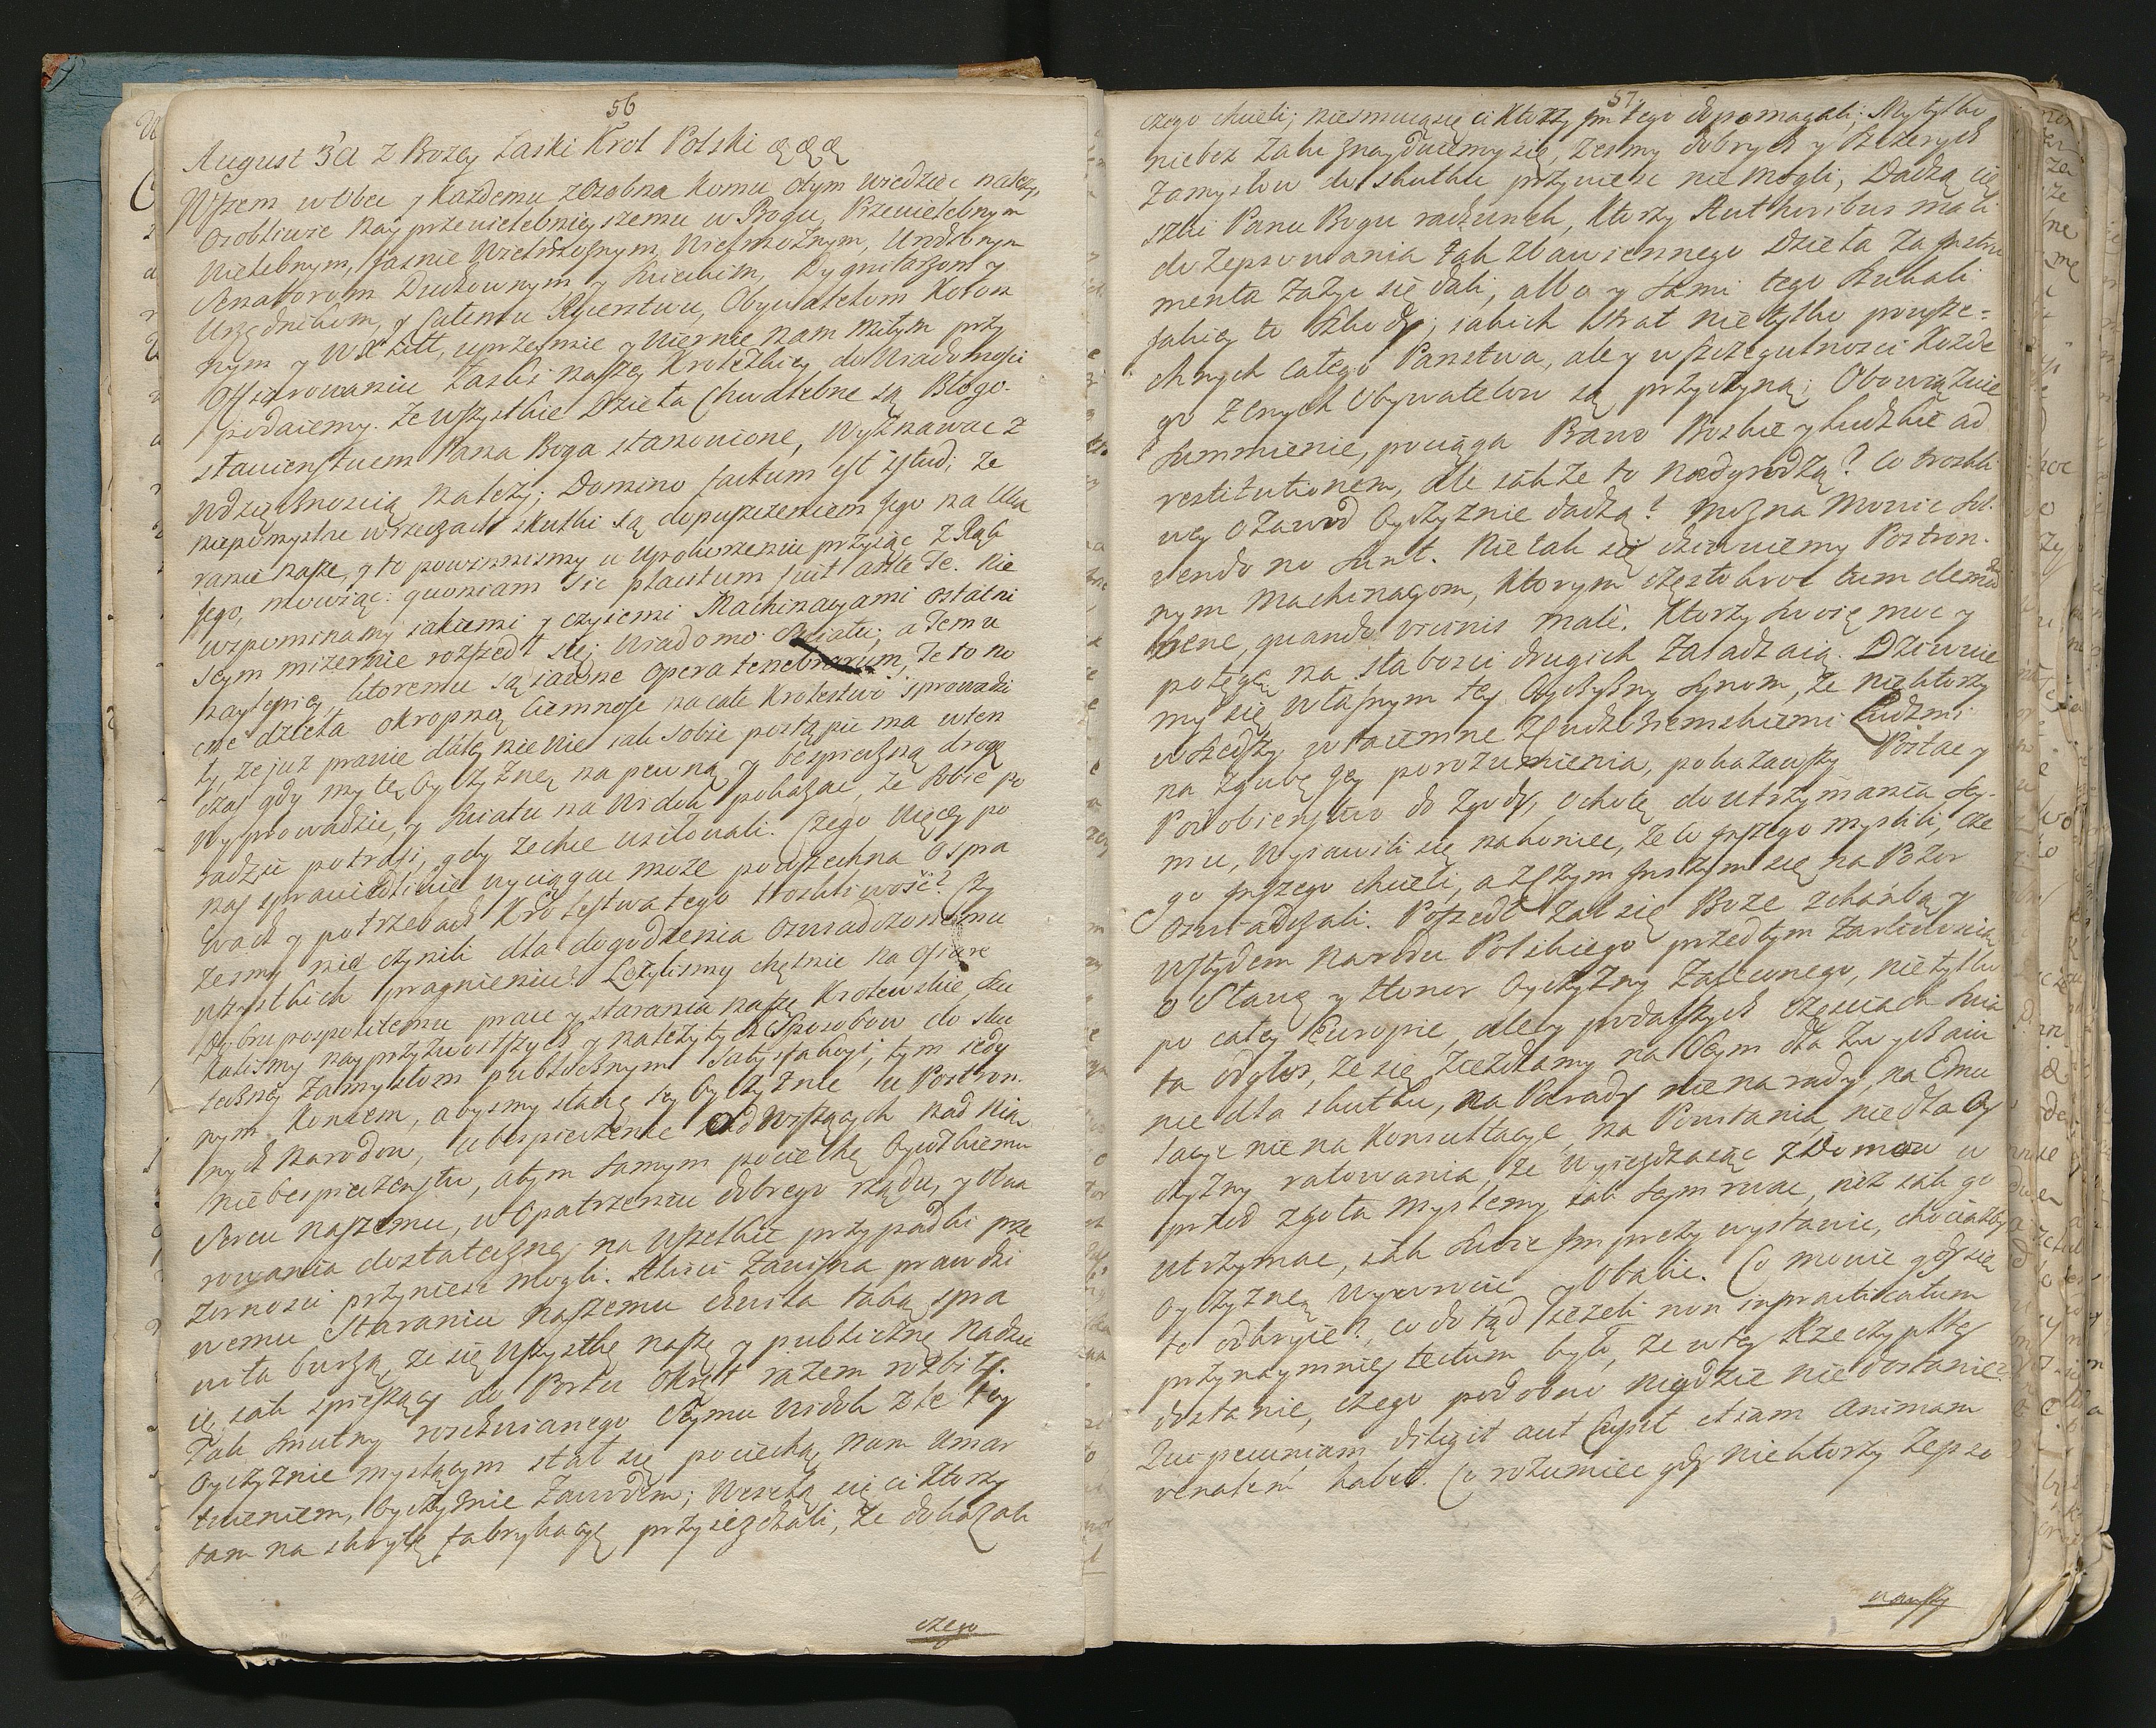 56
August 3ci z Bozey Łaski Krol Polski &c &c &c
Wszem wobec y Każdemu zosobna komu otym wiedziec należy,
osobliwie Nayprzewielebnieyszemu w Bogu, Przewielebnym
Wielebnym, Jasnie Wielmożnym, Wielmożnym, Urodzonym
Senatorom Duchownym y Swieckim, Dygnitarzom y
Urzędnikom, y Całemu Rycerstwu, Obywatelom Koron
nym y W X Litt, uprzeymie y Wiernie nam miłym przy
Offiarowaniu Łaski naszey Krolewskiey do Wiadomosci
podaiemy. Ze wszystkie Dzieła Chwalebne są Błogo-
sławienstwem Pana Boga stanowione, Wyznawac z
wdzięcznoscią należy; Domino factum est istud; że
niepomyslne w rzeczach skutki są dopuszczeniem Jego na Uka
ranie nasze, y to powinnismy w upokorzeniu przyiąc z Rąk
Jego, mowiąc: quoniam sic placitum fuit ante Te. Nie
wspominamy iakiemi y czyiemi Machinacyami ostatni
Seym mizernie rozszedł się; Wiadomo Swiatu; a Temu
naylepiey, ktoremu są iawne opera tenebrarum, że to no
cne dzieła okropną Ciemnosc na całe Krolestwo sprowadzi
ły, że już prawie daley nie wie iak sobie postąpic ma wten
czas gdy my tę Oyczyznę na pewną y bespieczną drogę
Wyprowadzic, y Swiatu na Widok pokazac, że sobie po
radzic potrafi, gdy zechce usiłowali. Czego więcey po
nas sprawiedliwie wyciągac może powszechna o spra
wach y potrzebach Krolestwa tego troskliwość? Czy
żesmy nie czynili dla dogodzenia oswiadczonemu
wszystkich pragnieniu? Łożylismy chętnie na ofiarę
Dobru pospolitemu prace y starania nasze Krolewskie, szu
kalismy nayprzyzwoitszych y należytych sposobow do sku
teczney zamysłom publicznym Satysfakcyi; tym iedy
nym Koncem, abysmy sławę tey Oyczyznie u Postron.
nych Narodow, ubespieczenie od wiszących nad nią
niebespieczenstw, a tym samym pociechę Oycowskiemu
Sercu naszemu, w opatrzeniu dobrego rządu, y obwa
rowania dostateczney na wszelkie przypadki prze
zornosci przyniesc mogli. Aliści zawisna prawdzi
wemu Staraniu naszemu chwila taką spra
wiła burzą, że się wszystkę naszę y publiczną nadzie
ię iak spieszący do Portu okręt razem rozbiły.
Tak smutny roschwianego Seymu widok zle tey
Oyczyznie myslącym stał się pociechą, nam umar
twieniem, Oyczyznie zawodem; Weselą się ci ktorzy
tam na skrytę fabrykacyę przyieżdżali, że dokazali
czego
57
czego chcieli; nie smucą się ci ktorzy im tego dopomagali; My tylko
niebez żalu znayduiemy się, żesmy dobrych y szczerych
zamysłow do skutku przywiesc niemogli, Dadzą cię
szki Panu Bogu rachunek, ktorzy Authoribus mali
do zepsowania tak zbawiennego dzieła za Instru
menta zażyc się dali, albo y sami tego szukali
Jakiey to szkody; iakich strat nietylko powsze=
chnych całego Panstwa, ale y w szczegulnosci kożde
go zcnych Obywatelow są przyczyną; Obowiąznie
Summienie, pociąga Prawo Boskie y ludzkie ad
restitutionem, ale iakże to nadgrodzą? Co troskli
wey o zawod Oyczyznie dadzą? można mowic Sol.
vendo no Sunt. Nie tak się dziwuiemy Postron.
nym machinacyom, ktorym częstokroc tum demum
bene, quando vicinis male. Ktorzy swoię moc y
potęgę na słabosci drugich zasadzaią. Dziwuie
my się własnym tey Oyczyzny Synom, że niektorzy
wszedszy w taiemne z Cudzoziemskiemi Ludzmi
na zgubę iey porozumienia, pokazawszy Postac y
Podobienstwo do zgody, ochotę do utrzymania Sey-
mu, wyiawili się nakoniec, że co inszego myslili, cze
go inszego chcieli, a z czym inszym się na Pozor
oswiadczali. Poszedł żal się Boze zchańbą y
wstydem Narodu Polskiego przedtym żarliwoscią
o Sławę y Honor Oyczyzny zalewnego, nietylko
po całey Europie, ale y w odalszych częsciach swia
ta odgłos, że się zieżdżamy na Seym dla zwyczaiu
nie dla skutku, na Parady nie na rady, na Emu
lacye nie na Konsultacye, na Powstania nie dla Oy
czyzny ratowania, że wyieżdżaiąc z Domow w
przod zgoła myslemy iak Seym rwac, niż iak go
utrzymac, iak swoie Imprezy wystawic, chociażby
Oyczyznę wywrocic y obalic. Co mowic gdy się
to odkryie?, co do tąd ieżeli non inpracticatum
przynaymniey tectum było, że w tey Rzeczyptey
dostanie, czego podobno nigdzie niedostanie?
Qui pecuniam diligit aut cupit etiam animam
venalem habet. Co rozumiec gdy niektorzy zepso
wawszy